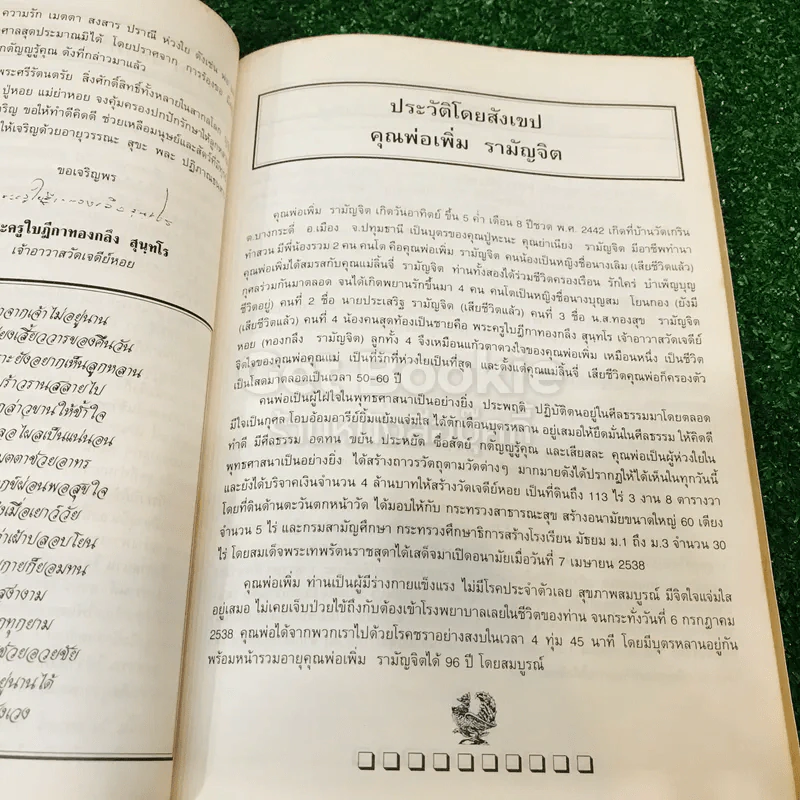 ความรัก เมตตา สงสาร ปราณี ห่วงใย ดังเช่น
ศาลสุดประมาณมิได้ โดยปราศจาก การร้องขอ
กตัญญูรู้คุณ ดังที่กล่าวมาแล้ว
พระศรีรัตนตรัย สิ่งศักดิ์สิทธิ์ทั้งหลายในสากลโลก
ปู่หอย แม่ย่าหอย จงคุ้มครองปกปักรักษาให้ลูกหลาน
เจริญ ขอให้ทำดีคิดดี ช่วยเหลือมนุษย์และสัตว์
ให้เจริญด้วยอายุวรรณะ สุขะ พละ ปฏิภาณ
ขอเจริญพร
ะครูใบฎีกาทองกลึง สุนฺทโร
เจ้าอาวาสวัดเจดีย์หอย
าจากเจ้าไม่อยู่นาน
ยงเสี้ยววารของคืนวัน
าะยังอยากเห็นลูกหลาน
ร้าวรานสลายไป
กล่าวขานให้ช้ำใจ
ลอไผลเป็นแน่นอน
มตตาช่วยอาทร
กข์ผ่อนพอสุขใจ
งเมื่อเยาว์วัย
าเฝ้าปลอบโยน
ยกายก็ยอมทน
รงำงาม
กทุกยาม
ช่วยอวยชัย
ยู่นานได้
ังเวง
ประวัติโดยสังเขป
คุณพ่อเพิ่ม รามัญจิต
คุณพ่อเพิ่ม รามัญจิต เกิดวันอาทิตย์ ขึ้น 5 ค่ำ เดือน 8 ปีชวด พ.ศ. 2442 เกิดที่บ้านวัดเกริน
ต.บางกระดี่ อ.เมือง จ.ปทุมธานี เป็นบุตรของคุณปู่หะนะ คุณย่าเนียง รามัญจิต มีอาชีพทำนา
ทำสวน มีพี่น้องรวม 2 คน คนโต คือคุณพ่อเพิ่ม รามัญจิต คนน้องเป็นหญิงชื่อนางเลิม (เสียชีวิตแล้ว)
คุณพ่อเพิ่มได้สมรสกับคุณแม่ลิ้นจี่ รามัญจิต ท่านทั้งสองได้ร่วมชีวิตครองเรือน รักใคร่ บำเพ็ญบุญ
กุศลร่วมกันมาตลอด จนได้เกิดพยานรักขึ้นมา 4 คน คนโตเป็นหญิงชื่อนางบุญสม โยนกอง (ยังมี
ชีวิตอยู่) คนที่ 2 ชื่อ นายประเสริฐ รามัญจิต (เสียชีวิตแล้ว) คนที่ 3 ชื่อ น.ส.ทองสุข รามัญจิต
(เสียชีวิตแล้ว) คนที่ 4 น้องคนสุดท้องเป็นชายคือ พระครูใบฎีกาทองกลึง สุนฺทโร เจ้าอาวาสวัดเจดีย์
หอย (ทองกลึง รามัญจิต) ลูกทั้ง 4 จึงเหมือนแก้วตาดวงใจของคุณพ่อเพิ่ม เหมือนหนึ่ง เป็นชีวิต
จิตใจของคุณพ่อคุณแม่ เป็นที่รักที่ห่วงใยเป็นที่สุด และตั้งแต่คุณแม่ลิ้นจี่ เสียชีวิตคุณพ่อก็ครองตัว
เป็นโสดมาตลอดเป็นเวลา 50-60 ปี
คนพ่อเป็นผู้ใฝ่ใจในพุทธศาสนาเป็นอย่างยิ่ง ประพฤติ ปฏิบัติตนอยู่ในศีลธรรมมาโดยตลอด
มีใจเป็นกุศล โอบอ้อมอารีย์ยิ้มแย้มแจ่มใส ได้ตักเตือนบุตรหลาน อยู่เสมอให้ยึดมั่นในศีลธรรม ให้คิดดี
ทำดี มีศีลธรรม อดทน ขยัน ประหยัด ซื่อสัตย์ กตัญญูรู้คุณ และเสียสละ คุณพ่อเป็นผู้ห่วงใยใน
พุทธศาสนาเป็นอย่างยิ่ง ได้สร้างถาวรวัตถุตามวัดต่างๆ มากมายดังได้ปรากฏให้ได้เห็นในทุกวันนี้
และยังได้บริจาคเงินจำนวน 4 ล้านบาทให้สร้างวัดเจดีย์หอย เป็นที่ดินถึง 113 ไร่ 3 งาน 8 ตารางวา
โดยที่ดินด้านตะวันตกหน้าวัด ได้มอบให้กับ กระทรวงสาธารณะสุข สร้างอนามัยขนาดใหญ่ 60 เตียง
จำนวน 5 ไร่ และกรมสามัญศึกษา กระทรวงศึกษาธิการสร้างโรงเรียน มัธยม ม.1 ถึง ม.3 จำนวน 30
ไร่ โดยสมเด็จพระเทพรัตนราชสุดาได้เสด็จมาเปิดอนามัยเมื่อวันที่ 7 เมษายน 2538
คุณพ่อเพิ่ม ท่านเป็นผู้มีร่างกายแข็งแรง ไม่มีโรคประจำตัวเลย สุขภาพสมบูรณ์ มีจิตใจแจ่มใส
อยู่เสมอ ไม่เคยเจ็บป่วยไข้ถึงกับต้องเข้าโรงพยาบาลเลยในชีวิตของท่าน จนกระทั่งวันที่ 6 กรกฎาคม
2538 คุณพ่อได้จากพวกเราไปด้วยโรคชราอย่างสงบในเวลา 4 ทุ่ม 45 นาที โดยมีบุตรหลานอยู่กัน
พร้อมหน้ารวมอายุคุณพ่อเพิ่ม รามัญจิตได้ 96 ปี โดยสมบูรณ์